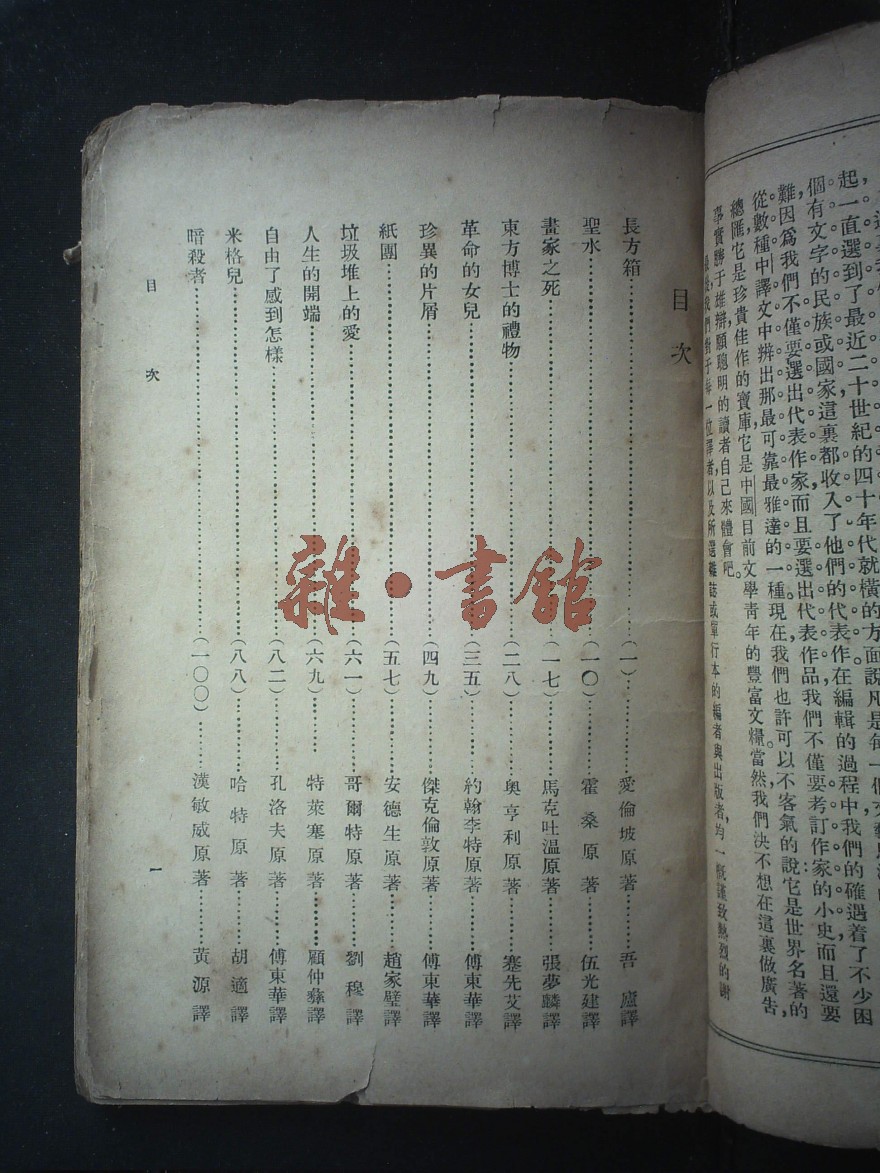 個有文字的民族或國家這裏都收入了他們的代表作在編輯的過程中我們的確遇着了不少困
難因爲我們不僅要選出代表作家而且要選出代表作品我們不僅要考訂作家的小史而且還要
從數種中譯文中辨出那最可靠最雅達的一種現在,我們也許可以不客氣的說它是世界名著的
總匯,它是珍貴佳作的寶庫它是中國目前文學青年的豐富文糧當然我們決不想在這裏做廣告,
事實勝于雄辯願聰明的讀者自己來體會吧。
最後我們對于每一位譯者以及所選雜誌或單行本的編者與出版者,均一概謹致熱烈的謝
目次
長方箱(一)愛倫坡原著 吾廬譯
聖水(一〇)霍桑原著 伍光建譯
畫家之死(一七)馬克吐溫原著 張夢麟譯
東方博士的禮物(二八)奧亨利原著 蹇先艾譯
革命的女兒(三五)約翰李特原著 傅東華譯
珍異的片屑(四九)傑克倫敦原著 傅東華譯
紙團(五七)安德生原著 趙家璧譯
垃圾堆上的愛(六一)哥爾特原著 劉穆譯
人生的開端(六九)特萊塞原著 顧仲彝譯
自由了感到怎樣(八二)孔洛夫原著 傅東華譯
米格兒(八八)哈特原著 胡適譯
暗殺者(一〇〇)漢敏威原著 黃源譯
目次 一
雜·書館